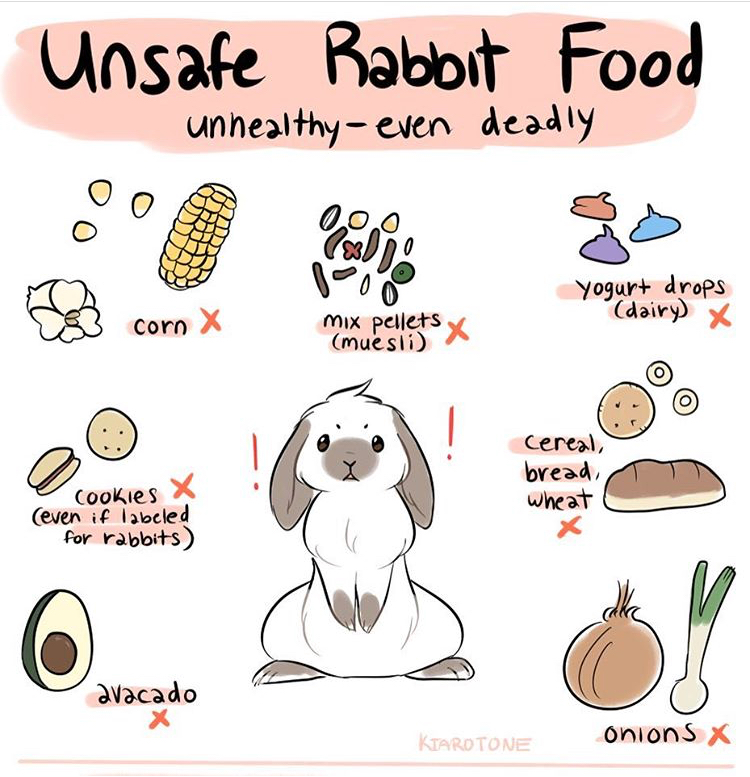 Unsafe Rabbit Food
unhealthy-even deadly
corn
mix pellets
(muesli)
yogurt drops
(dairy)
cookies
(even if labeled
for rabbits)
cereal,
bread,
wheat
avacado
onions
KIAROTONE